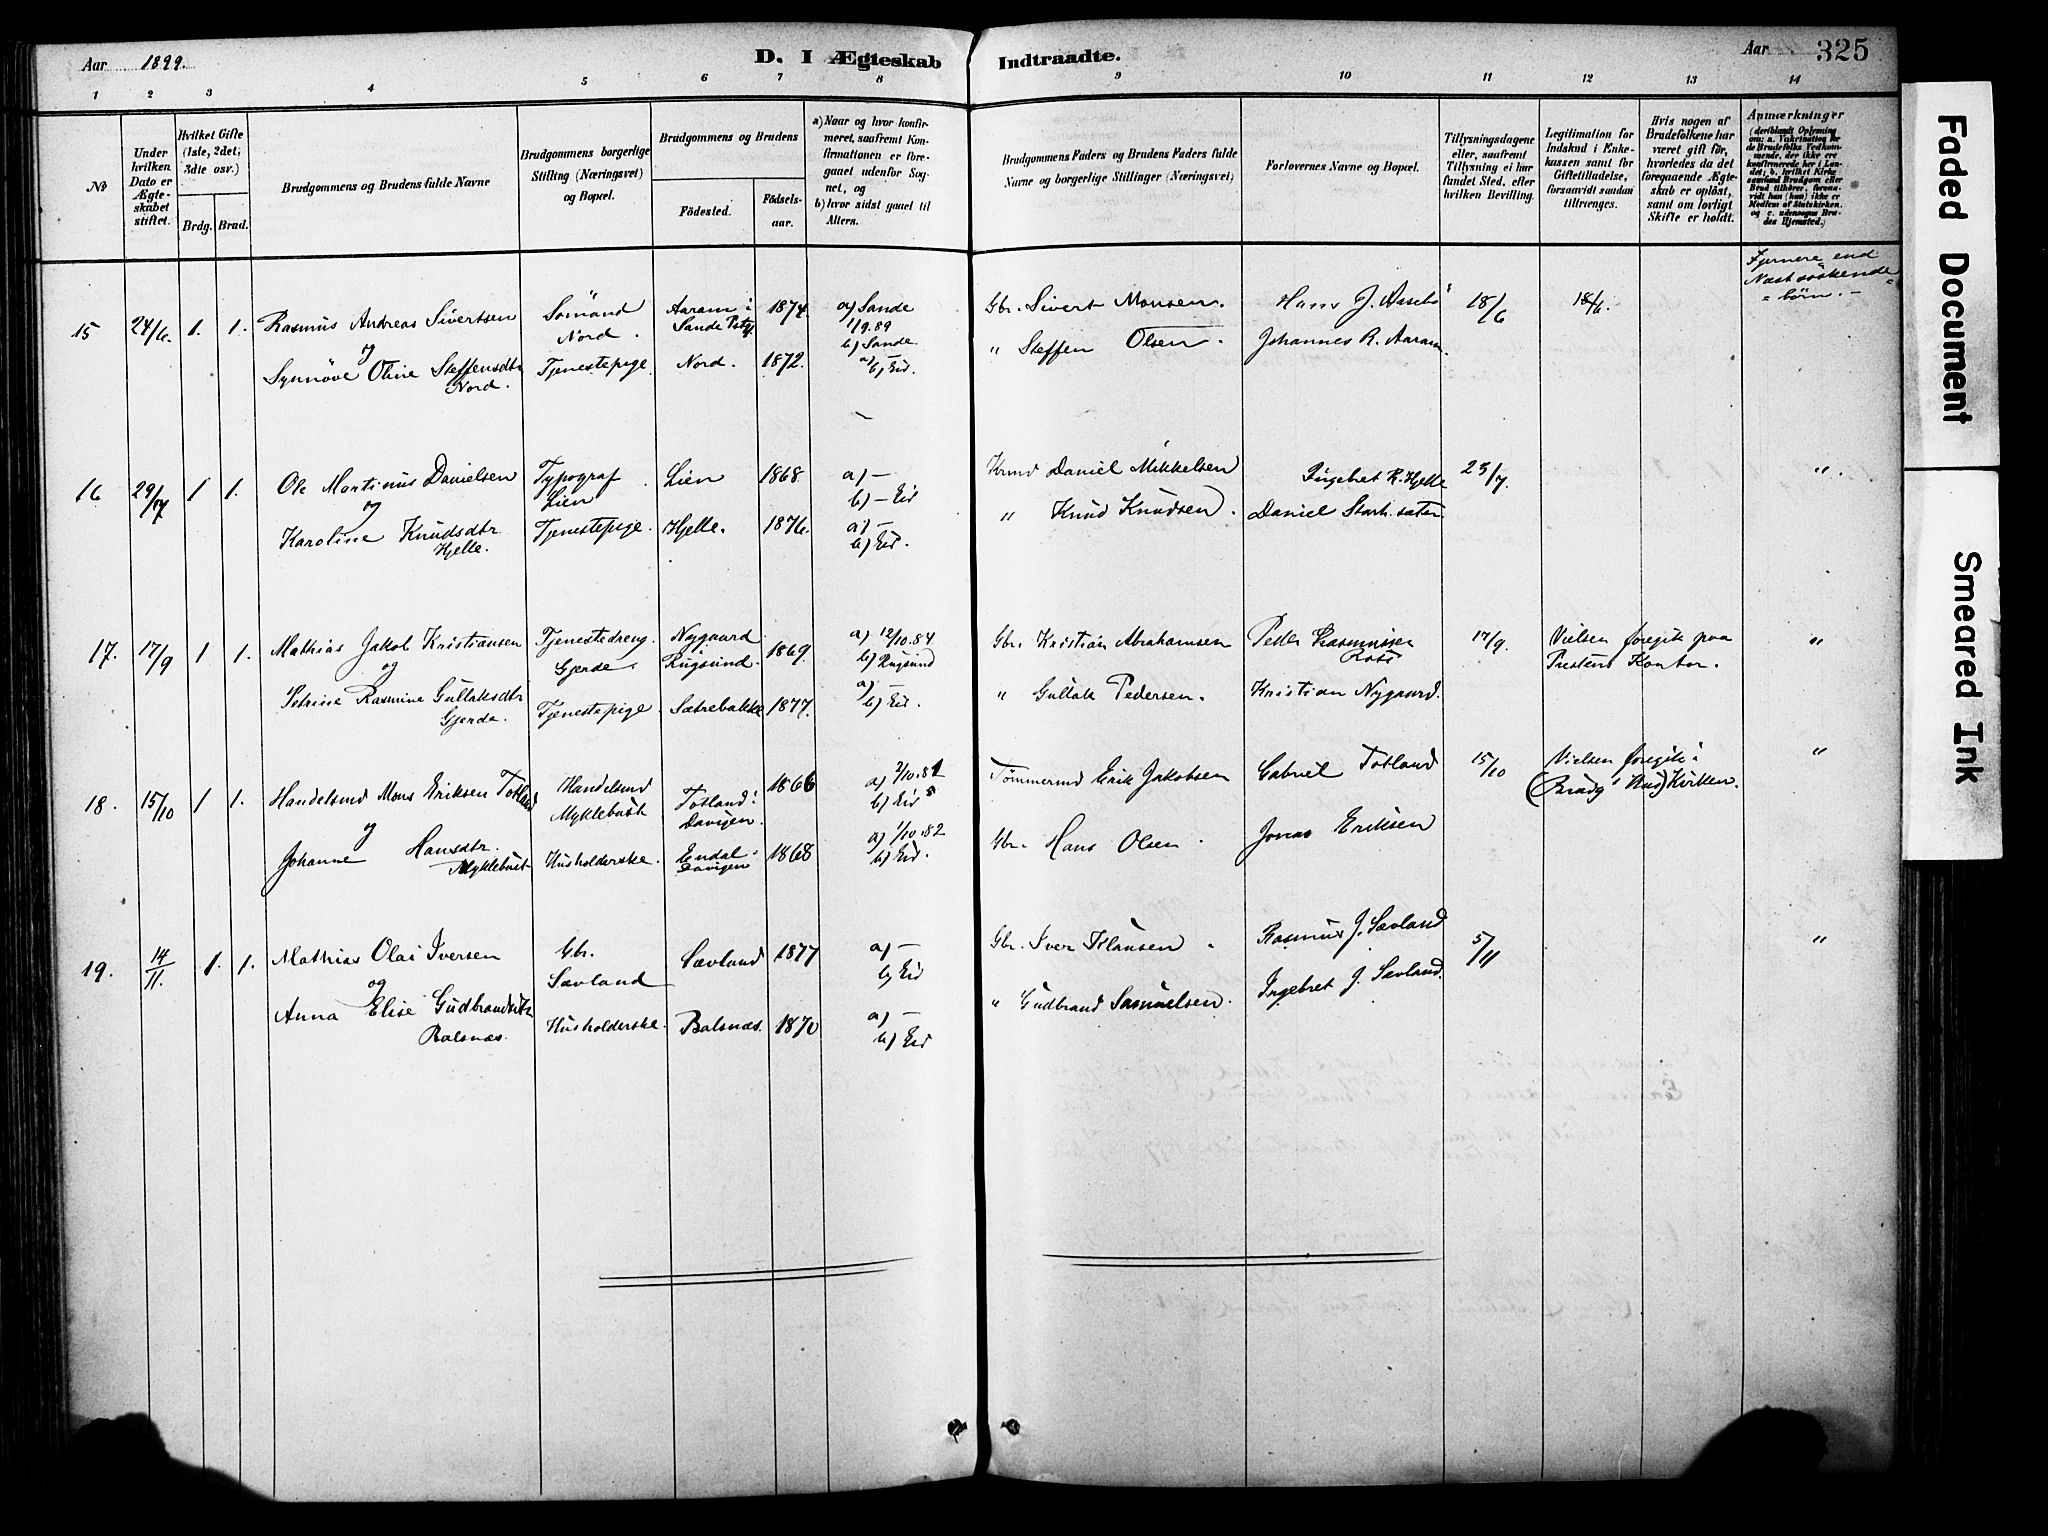 Aar 1899.
D. I Ægteskab Indtraadte.
Aar 325
1 2 3 4 5 6 7 8 9 10 11 12 13 14
№
Under hvilken Dato er Ægteskabet stiftet.
Hvilket Gifte (1ste, 2det; 3dte osv.)
Brdg. Brud.
Brudgommens og Brudens fulde Navne
Brudgommens borgerlige Stilling (Næringsvei) og Bopæl.
Brudgommens og Brudens
Födested. Födselsaar.
a) Naar og hvor konfirmeret, saafremt Konfirmationen er foregaaet udenfor Sognet, og
b) hvor sidst gaaet til Altern.
Brudgommens Faders og Brudens Faders fulde Navne og borgerlige Stillinger (Næringsvei)
Forlovernes Navne og Bopæl.
Tillysningsdagene eller, saafremt Tillysning ei har fundet Sted, efter hvilken Bevilling.
Legitimation for Indskud i Enkekassen samt for Giftetilladelse, forsaavidt saadan tiltrænges.
Hvis nogen af Brudefolkene har været gift för, hvorledes da det foregaaende Ægteskab er oplöst, samt om lovligt Skifte er holdt.
Anmærkninger
(deriblandt Oplysning om: a. Vakcination for de Brudefolks Vedkommende, der ikke ere konfirmerede her i Landet; b. hvilket Kirkesamfund Brudgom eller Brud tilhörer, forsaavidt han (hun) ikke er Medlem af Statskirken, og c. udensogns Brudes Hjemsted.)
15 24/6. 1. 1. Rasmus Andreas Sivertsen Sömand Nord. Aaram i Sande Pstg 1874. a) Sande 1/9.89 b) Sande. Gbr. Sivert Monsen. Hans J. 18/6 18/6. Fjernere end Næstsöskende börn.
og
Synnöve Oline Steffensdtr Nord. Tjenestepige. Nord. 1872. a) — b) Eid. " Steffen Olsen. Johannes R. Aaram.
16 29/7 1 1. Ole Martinus Danielsen Typograf Lien Lien 1868 a) — b) — Eid Daniel Mikkelsen Ingebret R. Hjelle 23/7. "
og
Karoline Knudsdtr Hjelle. Tjenestepige. Hjelle. 1876. a) — b) Eid. " Knud Knudsen. Daniel
17. 17/9 1 1. Mathias Jakob Kristiansen Tjenestedreng. Gjerde. Nygaard Rugsund. 1869. a) 12/10.84 b) Rugsund Gbr. Kristian Abrahamsen Peder Rasmussen 17/9. Vielsen foregik paa Prestens Kontor. "
og
Petrine Rasmine Gullaksdtr Gjerde. Tjenestepige. Sætrebakke 1877. a) — b) Eid. " Gullak Pedersen. Kristian Nygaard.
18. 15/10 1 1. Handelsmd Mons Eriksen Totland Handelsmd Myklebust Totland i Davigen. 1866 a) 2/10.81 b) Eid Tömmermd Erik Jakobsen Gabriel Totland 15/10 Vielsen foregik i Kirken. "
og
Johanne Hansdtr. Myklebust Husholderske. Endal Davigen 1868 a) 1/10.82 b) Eid. Gbr. Hans Olsen Jonas Eriksen
19. 14/11. 1. 1. Mathias Olai Iversen Gbr. Sævland Sævland 1877 a) — b) Eid Gbr. Iver Klausen Rasmus J. Sævland 5/11 "
og
Anna Elise Gudbrandsdtr Balsnæs. Husholderske. Balsnæs. 1870 a) — b) Eid " Gudbrand Samuelsen. Ingebret J. Sævland.
Faded Document
Smeared Ink